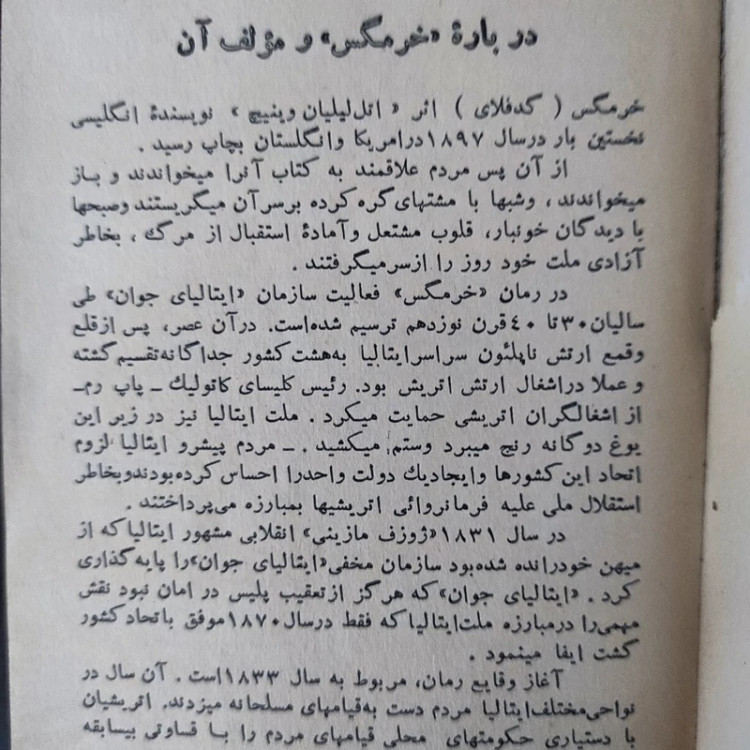 دربارهٔ «خرمگس» و مؤلف آن
خرمگس ( گدفلای ) اثر « اتل‌لیلیان وینیچ » نویسندهٔ انگلیسی
نخستین بار درسال ۱۸۹۷درامریکا وانگلستان بچاپ رسید .
از آن پس مردم علاقمند به کتاب آنرا میخواندند و بـاز
میخواندند ، وشبها با مشتهای گره کرده برسرآن میگریستند وصبحها
با دیدگان خونبار، قلوب مشتعل وآمادهٔ استقبال از مرگ ، بخاطر
آزادی ملت خود روز را ازسرمیگرفتند .
در رمان «خرمگس» فعالیت سازمان «ایتالیای جوان» طی
سالیان۳۰تا ۴۰قرن نوزدهم ترسیم شده‌است. درآن عصر، پس ازقلع
وقمع ارتش ناپلئون سراسرایتالیا به‌هشت کشور جداگانه‌تقسیم گشته
و عملا دراشغال ارتش اتریش بود. رئیس کلیسای کاتولیك ـ پاپ رم‌ـ
از اشغالگران اتریشی حمایت میکرد . ملت ایتالیا نیز در زیر این
یوغ دوگانه رنج میبرد وستم میکشید . ـ مردم پیشرو ایتالیا لزوم
اتحاد این‌کشورها وایجادیك دولت واحدرا احساس کرده‌بودندوبخاطر
استقلال ملی علیه فرمانروائی اتریشیها بمبارزه می‌پرداختند .
در سال ۱۸۳۱«ژوزف مازینی» انقلابی مشهور ایتالیاکه از
میهن خودرانده شده‌بود سازمان مخفی«ایتالیای جوان»را پایه‌گذاری
کرد . «ایتالیای جوان»که هرگز ازتعقیب پلیس در امان نبود نقش
مهمی‌را درمبارزه ملت‌ایتالیاکه فقط درسال۱۸۷۰موفق باتحادکشور
گشت ایفا مینمود .
آغاز وقایع رمان، مربوط به سال ۱۸۳۳است . آن سال در
نواحی‌مختلف‌ایتالیا مردم دست به‌قیامهای مسلحانه میزدند. اتریشیان
با دستیاری حکومتهای محلی قیامهای مردم را بـا قساوتی بیسابقه